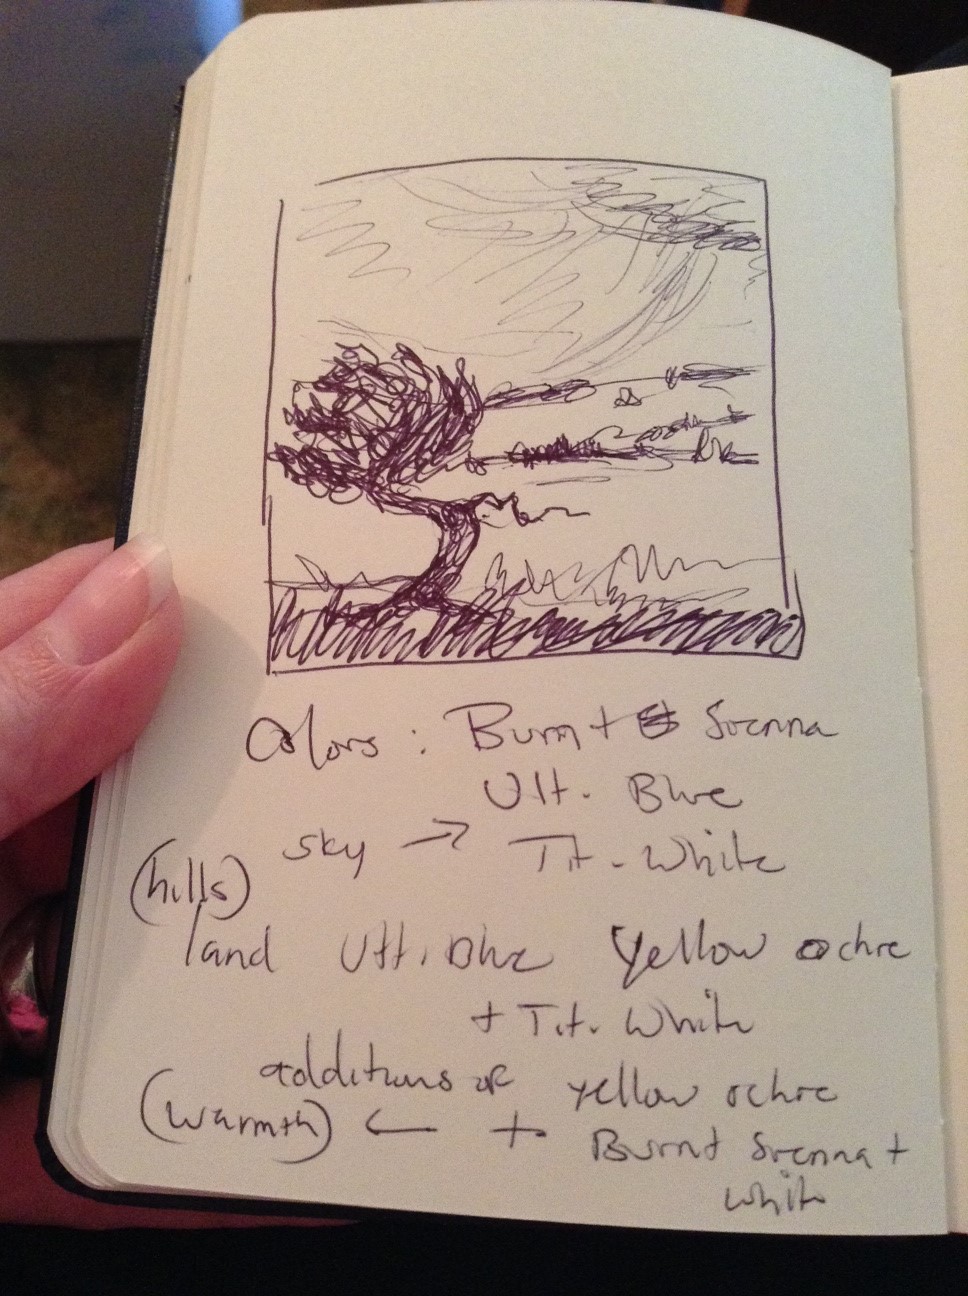 Colors : Burnt Sienna
Ult. Blue
sky → Tit. White
(hills)
land Ult. Blue Yellow ochre
+ Tit. White
additions of yellow ochre
(warmth) ← + Burnt Sienna +
white